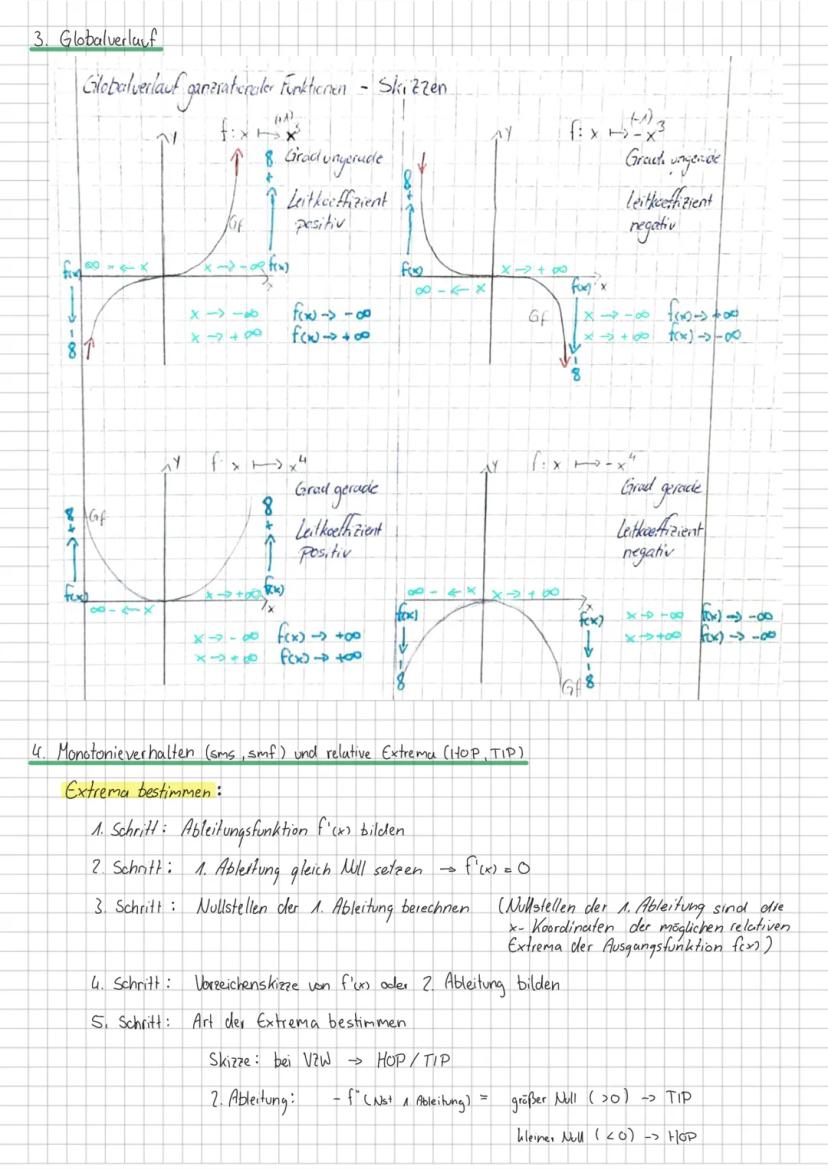 3. Globalverlauf
Globalverlauf ganzrationaler Funktionen - Skizzen
y
f: x ↦ (+1) x³
Grad ungerade
Leitkoeffizient
positiv
Gf
+ ∞
f(x) ∞ - ← x
x → - ∞ f(x)
x
x → -∞ f(x) → -∞
x → +∞ f(x) → +∞
- ∞
y
f: x ↦ (-1) - x³
Grad ungerade
Leitkoeffizient
negativ
+ ∞
f(x)
x → + ∞
∞ - ← x
f(x) x
Gf
x → -∞ f(x) → +∞
x → +∞ f(x) → -∞
- ∞
y
f: x ↦ x⁴
Grad gerade
Leitkoeffizient
positiv
+ ∞
Gf
+ ∞
f(x)
x → +∞ f(x)
∞ - ← x
x
x → - ∞ f(x) → +∞
x → + ∞ f(x) → +∞
y
f: x ↦ - x⁴
Grad gerade
Leitkoeffizient
negativ
∞ - ← x
x → + ∞
x
f(x)
f(x)
x → -∞ f(x) → -∞
x → +∞ f(x) → -∞
- ∞
Gf
- ∞
4. Monotonieverhalten (sms, smf) und relative Extrema (HOP, TIP)
Extrema bestimmen:
1. Schritt: Ableitungsfunktion f'(x) bilden
2. Schritt: 1. Ableitung gleich Null setzen → f'(x) = 0
3. Schritt: Nullstellen der 1. Ableitung berechnen (Nullstellen der 1. Ableitung sind die
x- Koordinaten der möglichen relativen
Extrema der Ausgangsfunktion f(x))
4. Schritt: Vorzeichenskizze von f'(x) oder 2. Ableitung bilden
5. Schritt: Art der Extrema bestimmen
Skizze: bei VZW → HOP / TIP
2. Ableitung: - f" (Nst 1 Ableitung) = größer Null (>0) → TIP
kleiner Null (<0) → HOP